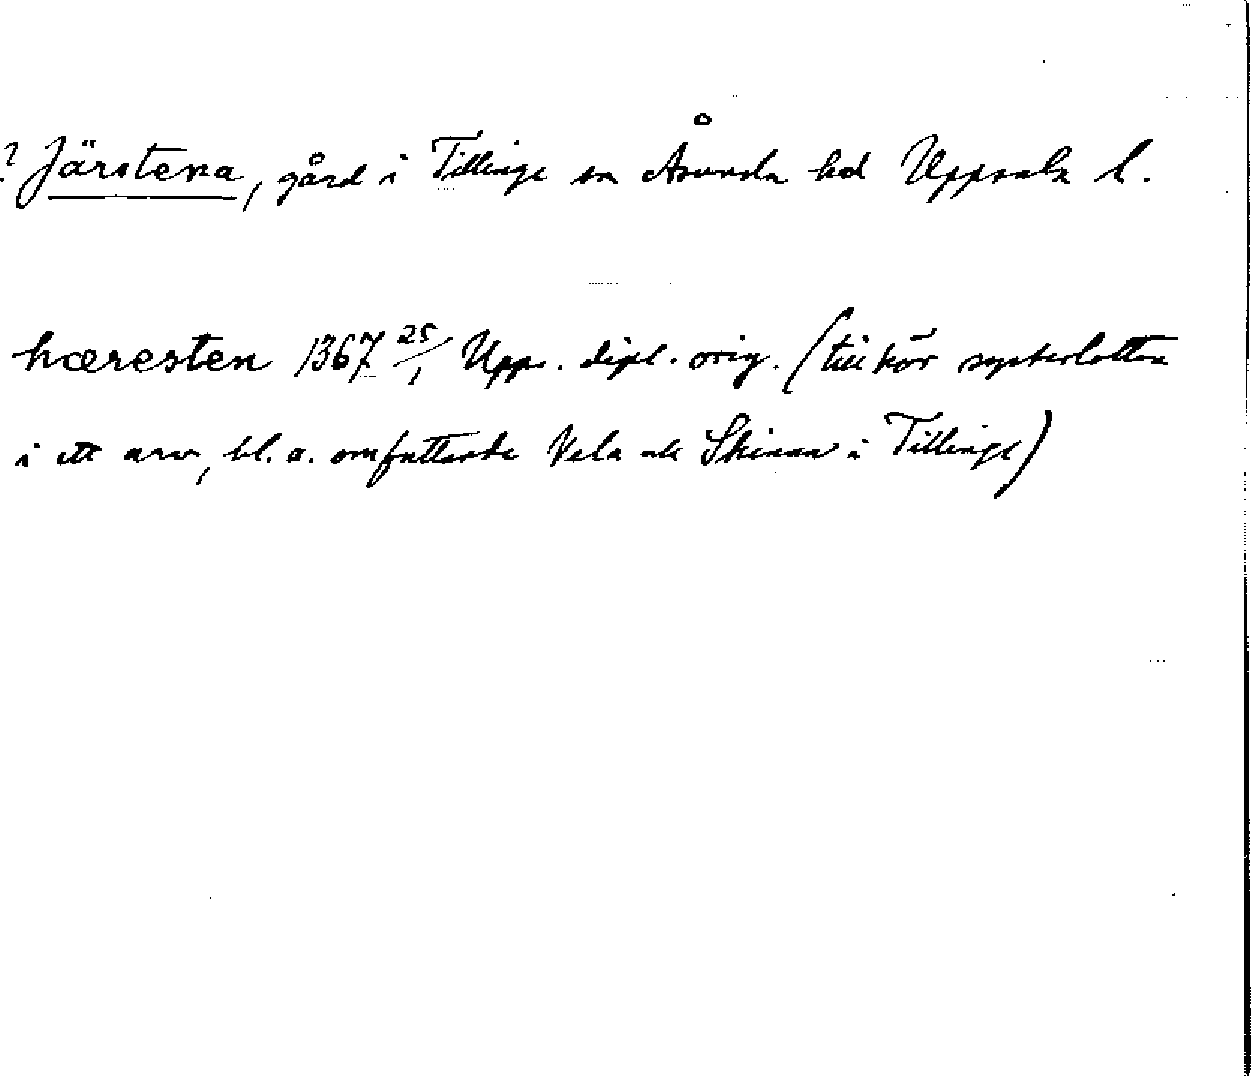 ? Järstena, gård i Tillinge sn Åsunda hd Uppsala l.
hæresten 1367 25/1 Upps. dipl. orig. (tillhör systerlotten
i ett arv, bl. a. omfattande Vela och Skinna i Tillinge)